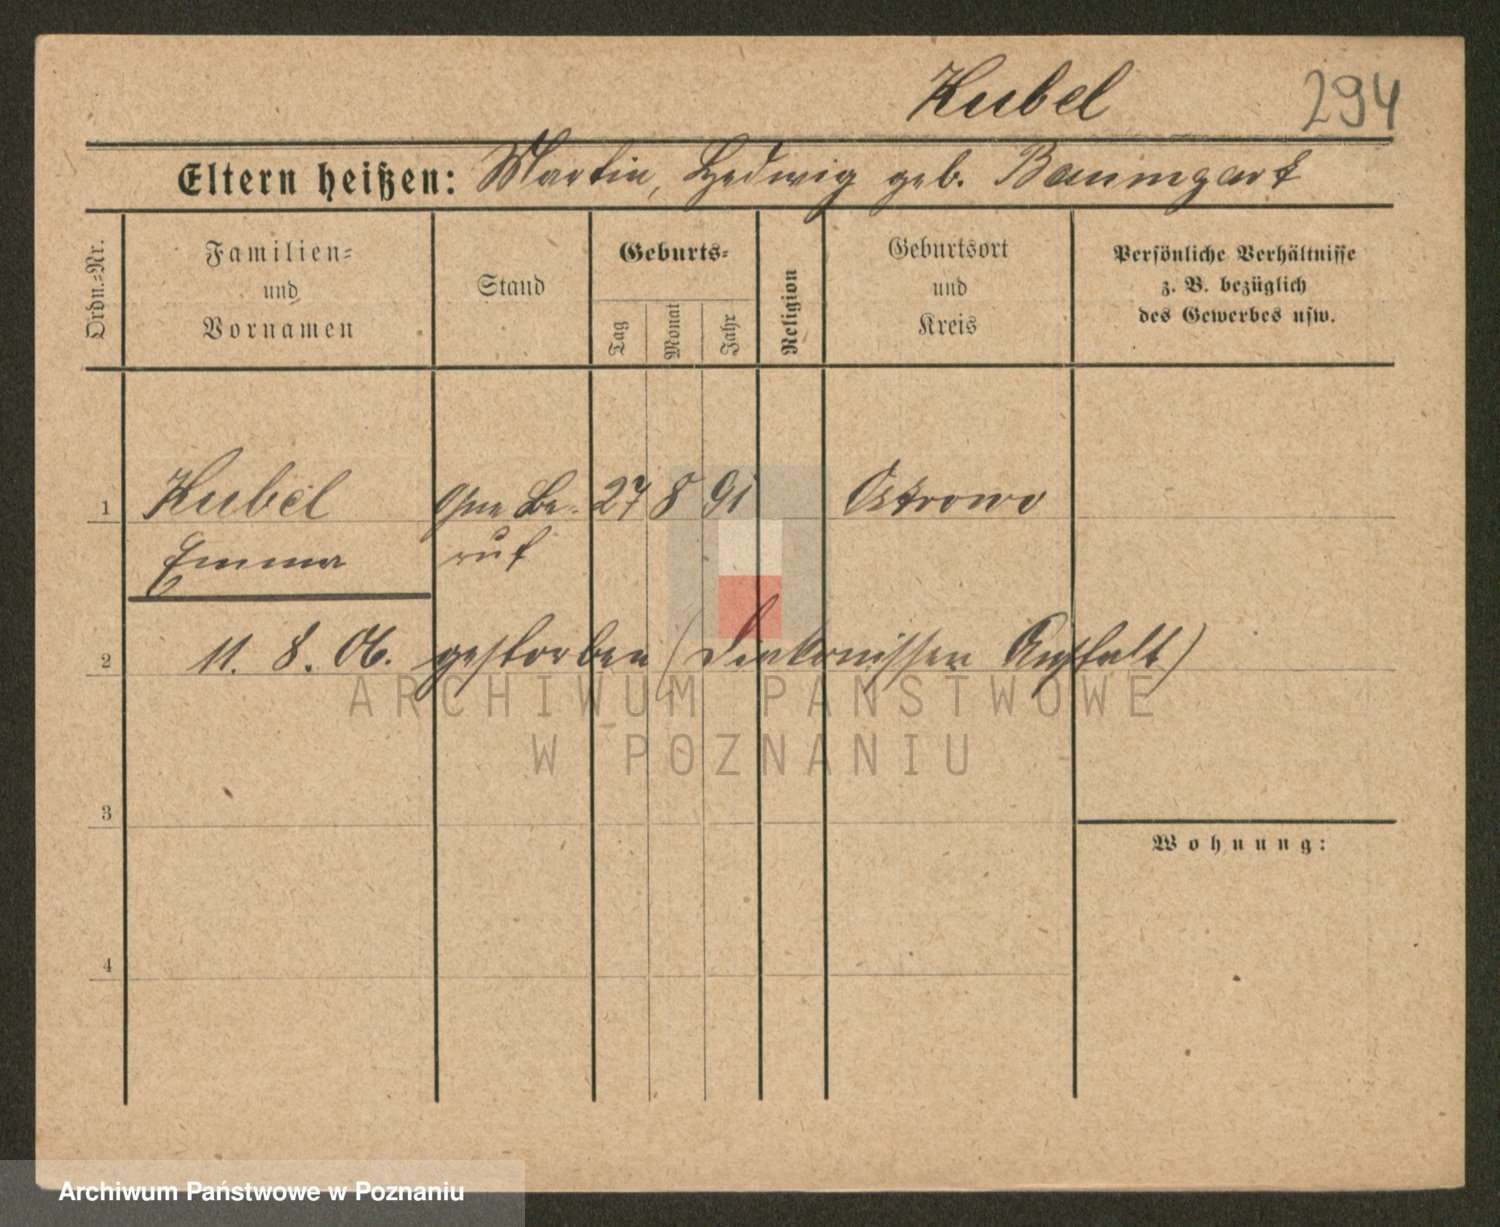 Kubel 294
Eltern heißen: Martin, Hedwig geb. Baumgart
Ordn.-Nr.
Familien-
und
Vornamen
Stand
Geburts-
Tag
Monat
Jahr
Religion
Geburtsort
und
Kreis
Persönliche Verhältnisse
z. B. bezüglich
des Gewerbes usw.
1 Kubel Ohne Be- 27 8 91 Ostrowo
Emma ruf
2 11. 8. 06. gestorben (Diakonissen Anstalt)
ARCHIWUM PAŃSTWOWE
W POZNANIU
3
Wohnung:
4
Archiwum Państwowe w Poznaniu